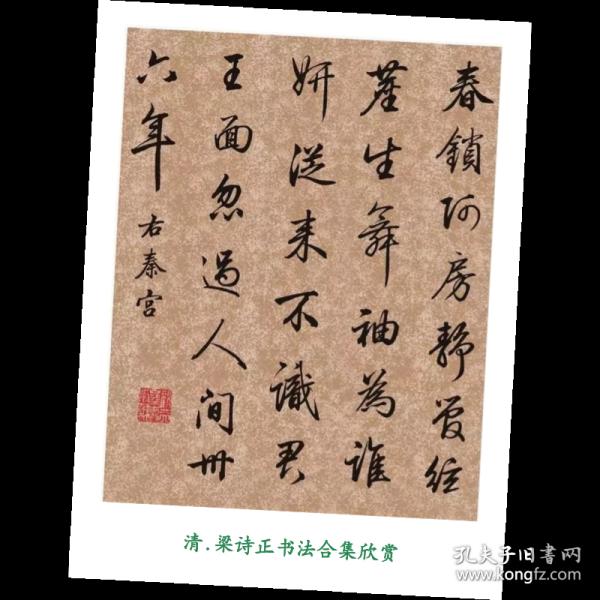 春鎖阿房靜管絃
塵生舞袖為誰
妍從来不識君
王面忽過人間卅
六年
右秦宮
清.梁诗正书法合集欣赏
孔夫子旧书网
www.kongfz.com